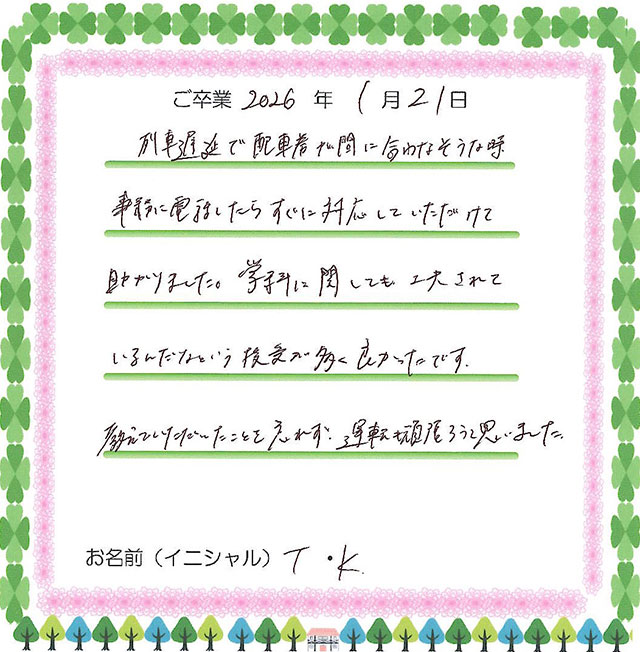 ご卒業 2026 年 1月21日
列車遅延で配車着が間に合わなそうな時
事務に電話したらすぐに対応していただけて
助かりました。学科に関しても工夫されて
いるんだなという授業が多く良かったです。
教えていただいたことを忘れず、運転も頑張ろうと思いました。
お名前（イニシャル）T・K.